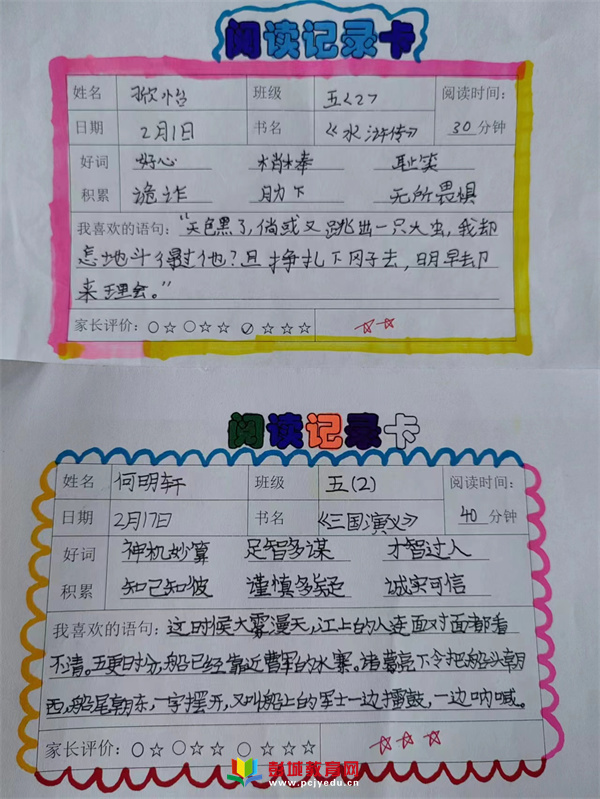 阅读记录卡
姓名 歆怡 班级 五(2) 阅读时间:
日期 2月1日 书名 《水浒传》 30分钟
好词 好心 梢棒 耻笑
积累 诡诈 助下 无所畏惧
我喜欢的语句:“天色黑了,倘或又跳出一只大虫,我却
怎地斗得过他?且挣扎下冈子去,明早却
来理会。”
家长评价:○☆ ○☆☆ ✓☆☆☆ ☆☆
阅读记录卡
姓名 何明轩 班级 五(2) 阅读时间:
日期 2月17日 书名 《三国演义》 40分钟
好词 神机妙算 足智多谋 才智过人
积累 知己知彼 谨慎多疑 诚实可信
我喜欢的语句:这时候大雾漫天,江上的人连面对面都看
不清。五更时分,船已经靠近曹军的水寨。诸葛亮下令把船头朝
西,船尾朝东,一字摆开,又叫船上的军士一边擂鼓,一边呐喊。
家长评价:○☆ ○☆☆ ○☆☆☆ ☆☆☆
彭城教育网
www.pcjyedu.cn